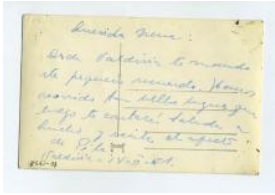 Querida Nena:
Desde Valdivia te mando
este pequeño recuerdo. Hemos
recorrido tan bellos lugares que
luego te contaré. Saludos a
Lucho y recibe el afecto
de
Valdivia -